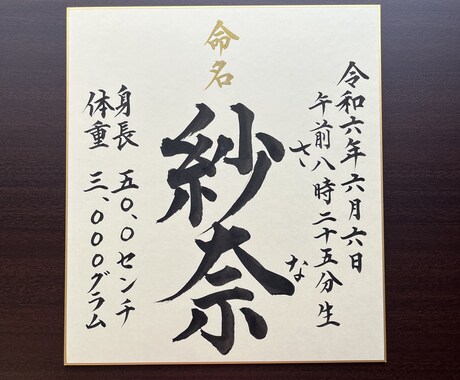 命名
令和六年六月六日
午前八時二十五分生
さ な
紗奈
身長 五〇.〇センチ
体重 三.〇〇〇グラム